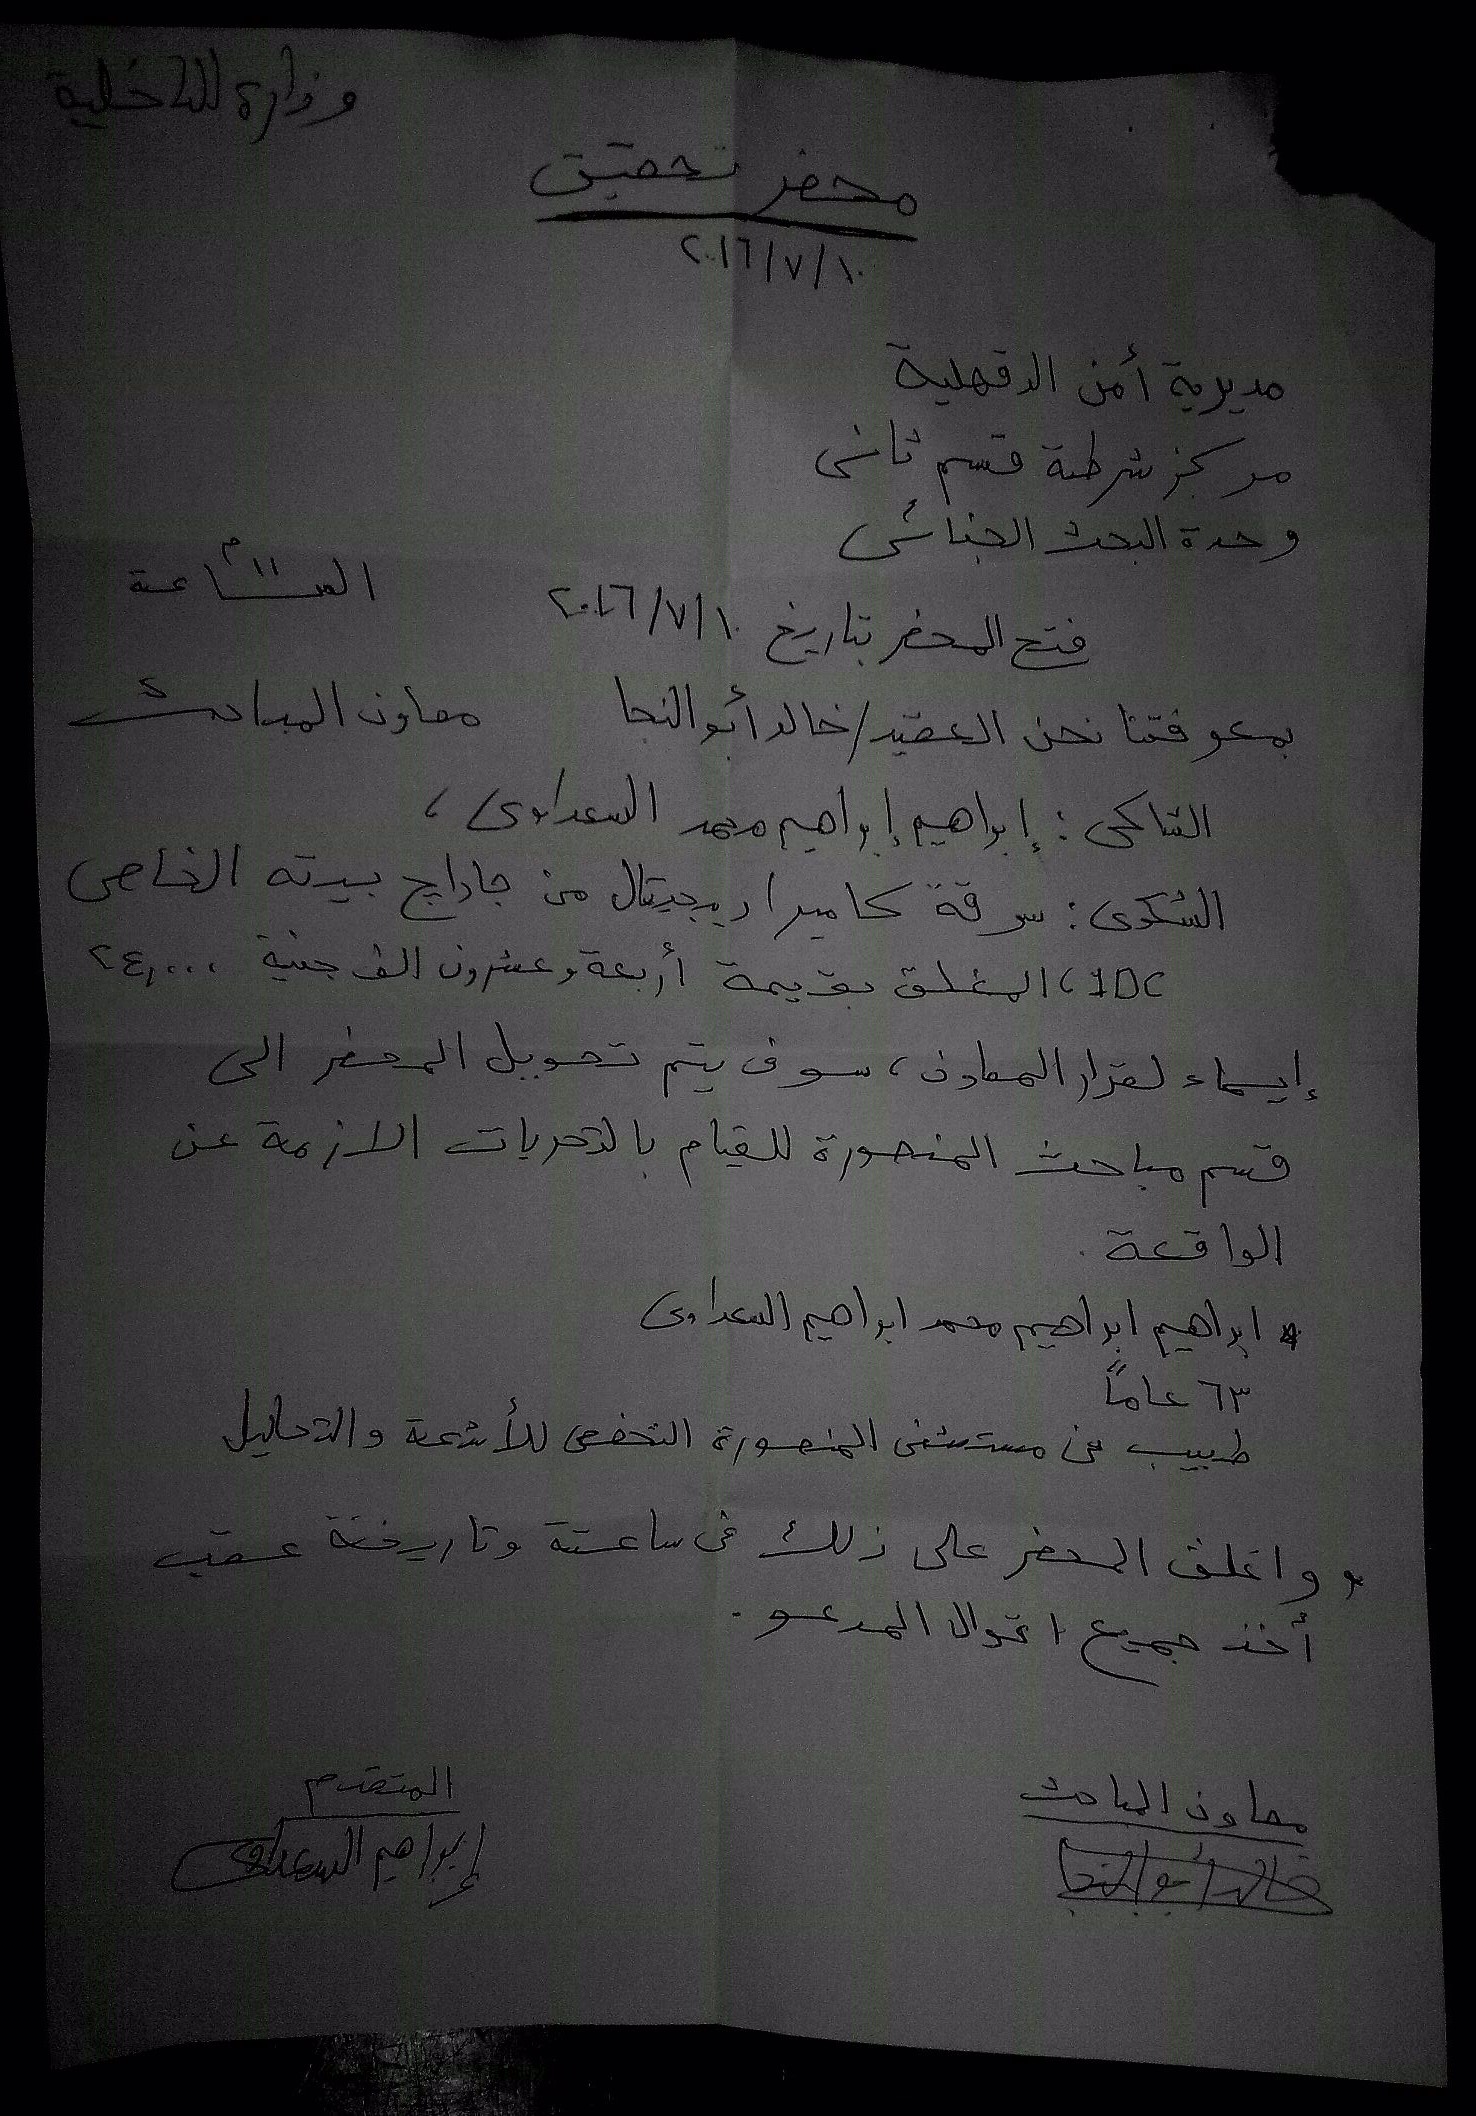 وزارة الداخلية
محضر تحقيق
٢٠١٦/٧/١٠
مديرية أمن الدقهلية
مركز شرطة قسم ثانى
وحدة البحث الجنائى
فتح المحضر بتاريخ ٢٠١٦/٧/١٠ الساعة ١١م
بمعرفتنا نحن العقيد/خالد أبو النجا معاون المباحث
الشاكى: إبراهيم إبراهيم محمد السعداوى،
الشكوى: سرقة كاميرا ديجيتال من جاراج بيته الخاص
1DC، المغلق بقيمة أربعة وعشرون الف جنية ٢٤,٠٠٠
إيماء لقرار المعاون، سوف يتم تحويل المحضر الى
قسم مباحث المنصورة للقيام بالتحريات الازمة عن
الواقعة.
* ابراهيم ابراهيم محمد ابراهيم السعداوى
٦٣ عاماً
طبيب فى مستشفى المنصورة التخصصى للأشعة والتحاليل
* واغلق المحضر على ذلك فى ساعتة وتاريخة عقب
أخذ جميع اقوال المدعو.
معاون المباحث
خالد أبو النجا
المتقدم
إبراهيم السعداوى